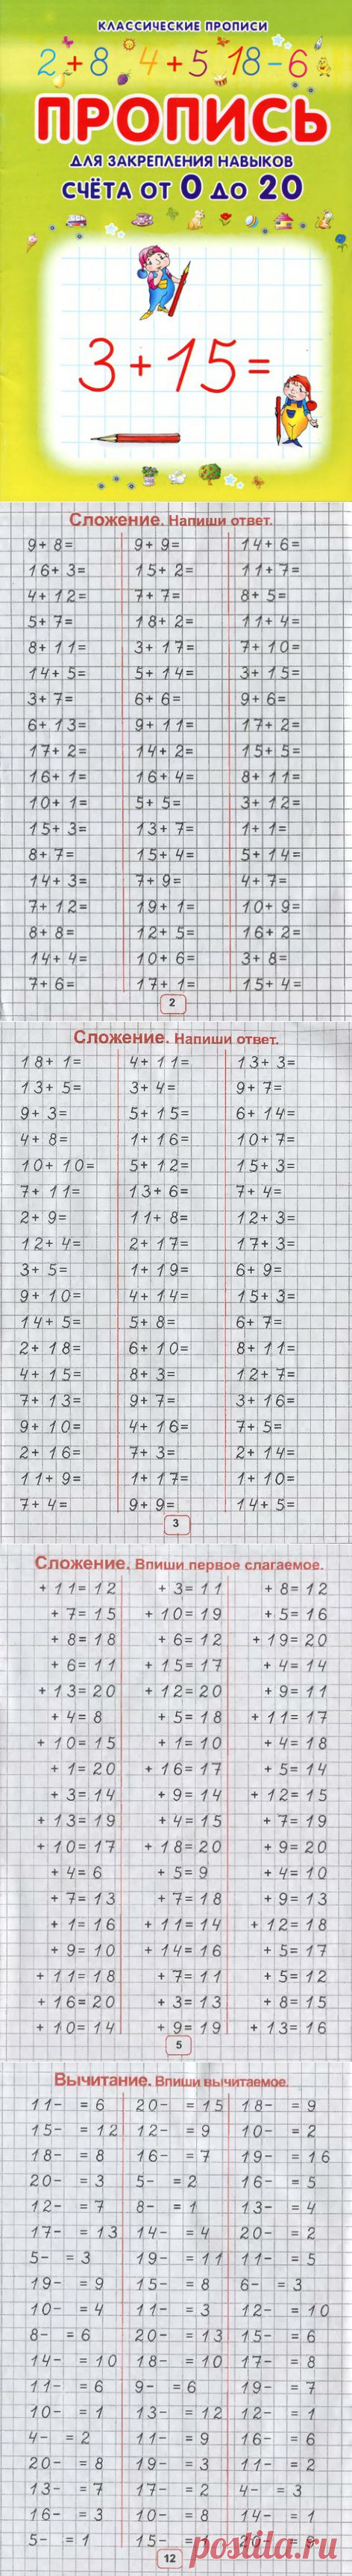 КЛАССИЧЕСКИЕ ПРОПИСИ
2+8 4+5 18-6
ПРОПИСЬ
ДЛЯ ЗАКРЕПЛЕНИЯ НАВЫКОВ
СЧЁТА ОТ 0 ДО 20
3+15=
Сложение. Напиши ответ.
9+8= 9+9= 14+6=
16+3= 15+2= 11+7=
4+12= 7+7= 8+5=
5+7= 18+2= 11+4=
8+11= 3+17= 7+10=
14+5= 5+14= 3+15=
3+7= 6+6= 9+6=
6+13= 9+11= 17+2=
17+2= 14+2= 15+5=
16+1= 16+4= 8+11=
10+1= 5+5= 3+12=
15+3= 13+7= 1+1=
8+7= 15+4= 5+14=
14+3= 7+9= 4+7=
7+12= 19+1= 10+9=
8+8= 12+5= 16+2=
14+4= 10+6= 3+8=
7+6= 17+1= 15+4=
2
Сложение. Напиши ответ.
18+1= 4+11= 13+3=
13+5= 3+4= 9+7=
9+3= 5+15= 6+14=
4+8= 1+16= 10+7=
10+10= 5+12= 15+3=
7+11= 13+6= 7+4=
2+9= 11+8= 12+3=
12+4= 2+17= 17+3=
3+5= 1+19= 6+9=
9+10= 4+14= 15+3=
14+5= 5+8= 6+7=
2+18= 6+10= 8+11=
4+15= 8+3= 12+7=
7+13= 9+7= 3+16=
9+10= 4+16= 7+5=
2+16= 7+3= 2+14=
11+9= 1+17= 1+10=
7+4= 9+9= 14+5=
3
Сложение. Впиши первое слагаемое.
+11=12 +3=11 +8=12
+7=15 +10=19 +5=16
+8=18 +6=12 +19=20
+6=11 +15=17 +4=14
+13=20 +12=20 +9=11
+4=8 +5=18 +11=17
+10=15 +1=10 +4=18
+1=20 +16=17 +5=14
+3=14 +9=14 +12=15
+13=19 +4=15 +7=19
+10=17 +18=20 +9=20
+4=6 +5=9 +4=10
+7=13 +7=18 +9=13
+1=16 +11=14 +12=18
+9=10 +14=16 +5=17
+11=18 +7=11 +5=12
+16=20 +3=13 +8=15
+10=14 +9=19 +13=16
5
Вычитание. Впиши вычитаемое.
11- =6 20- =15 18- =9
15- =12 12- =9 10- =2
18- =8 16- =7 19- =16
20- =3 5- =2 16- =5
12- =7 8- =1 13- =4
17- =13 14- =4 20- =2
5- =3 19- =11 11- =5
19- =9 15- =8 6- =3
10- =4 11- =3 12- =10
8- =6 20- =13 15- =6
14- =10 18- =10 17- =8
11- =6 9- =6 19- =7
10- =1 13- =12 12- =1
4- =2 11- =9 16- =6
20- =8 19- =3 11- =2
13- =7 17- =2 4- =3
16- =3 10- =8 14- =1
5- =1 15- = 20- =
12
postila.ru